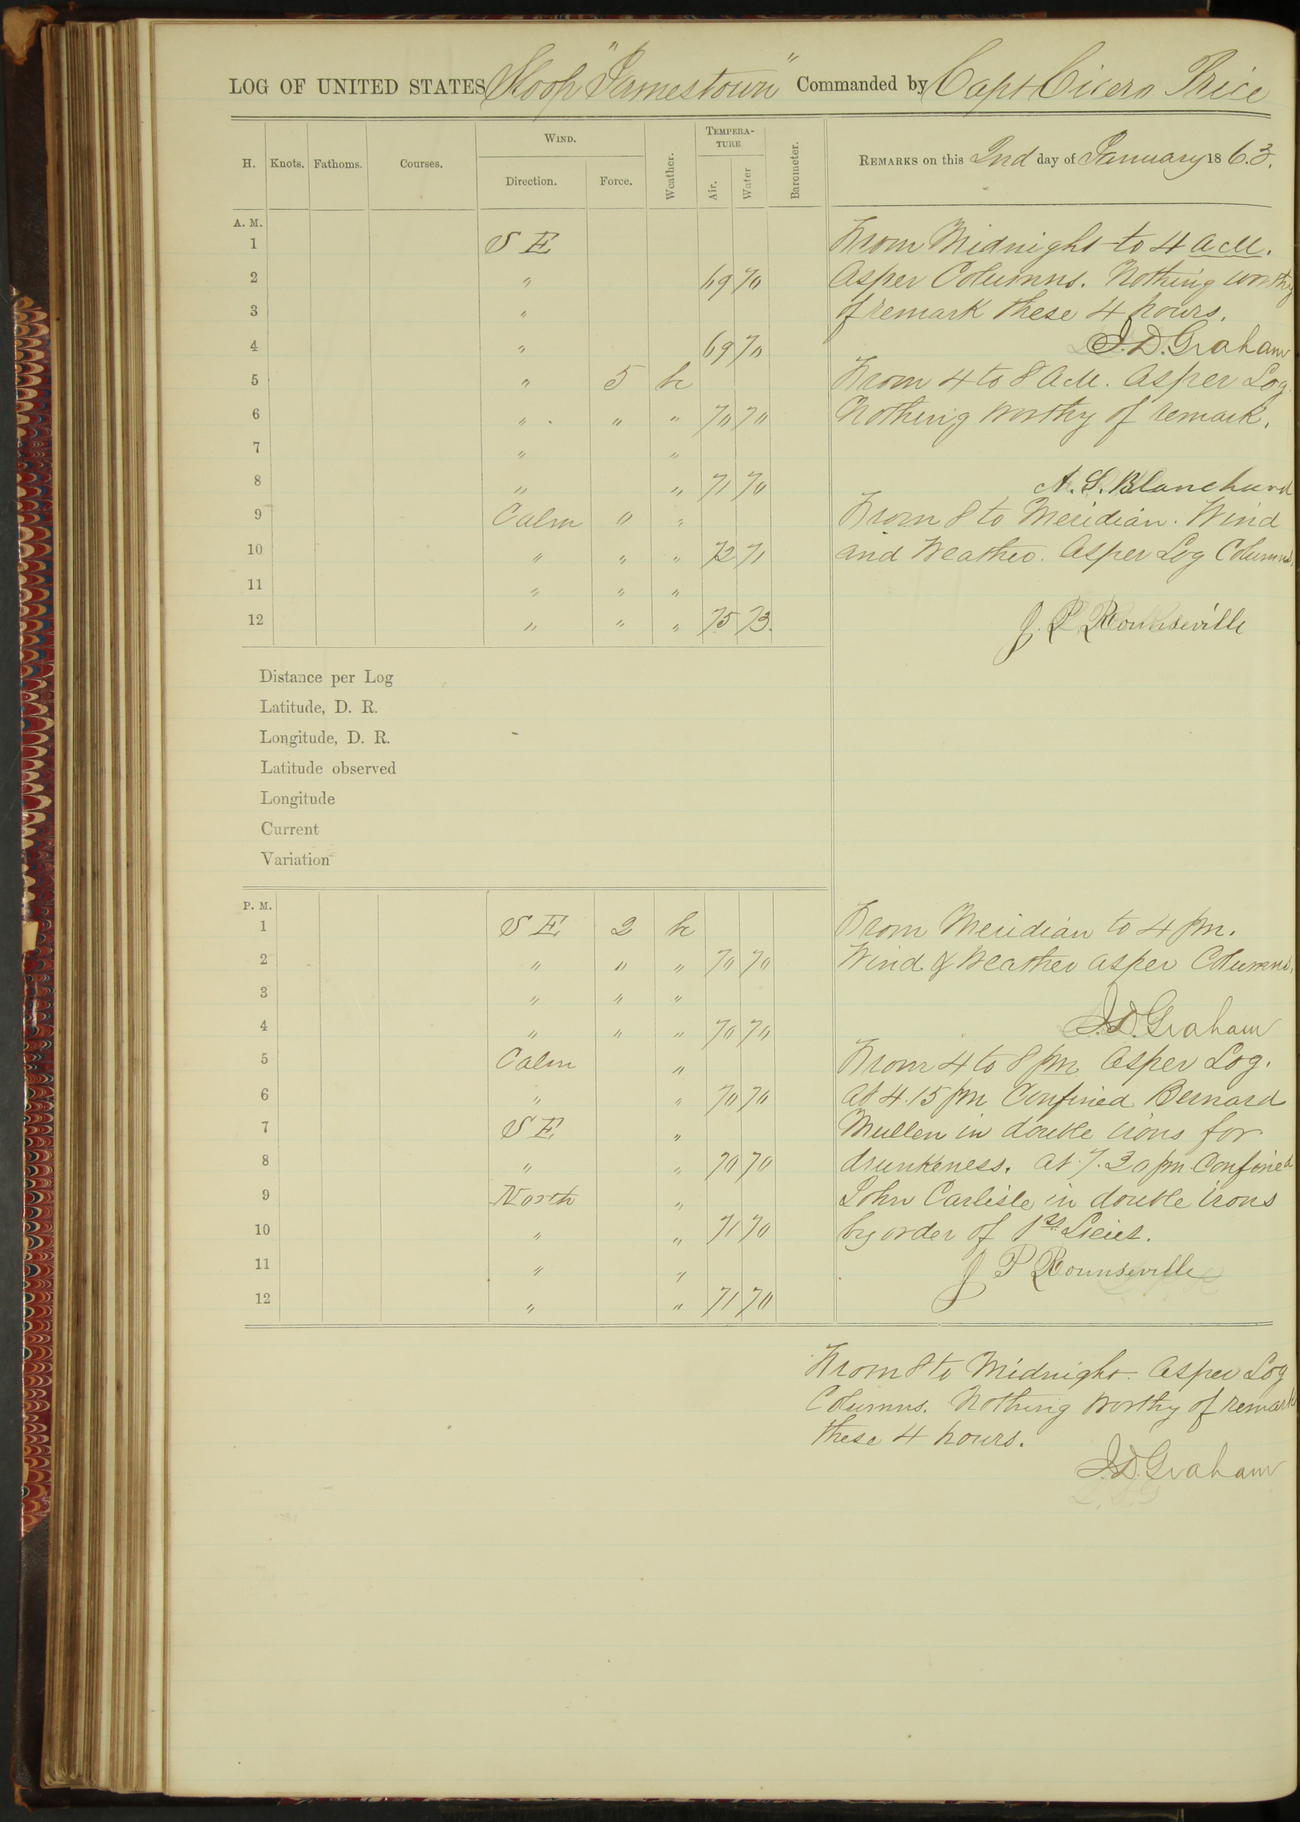 LOG OF UNITED STATES Sloop "Jamestown" Commanded by Capt Cicero Price
H. Knots. Fathoms. Courses. WIND. Direction. Force. Weather. TEMPERATURE Air. Water Barometer. REMARKS on this 2nd day of January 1863.
A. M.
1 S E From Midnight to 4 A.M.
2 " 69 70 Asper Columns. Nothing worthy
3 " of remark these 4 hours.
4 " 69 70 J. D. Graham
5 " 5 bc From 4 to 8 A.M. Asper Log
6 " " " 70 70 Nothing worthy of remark.
7 " "
8 " " 71 70 A. S. Blanchard
9 Calm " " From 8 to Meridian. Wind
10 " " " 72 71 and Weather. Asper Log Columns.
11 " " "
12 " " " 75 73. J. P. Rounseville
Distance per Log
Latitude, D. R.
Longitude, D. R.
Latitude observed
Longitude
Current
Variation
P. M.
1 S E 2 bc From Meridian to 4 pm.
2 " " " 70 70 Wind & Weather asper Columns.
3 " " "
4 " " " 70 70 J. D. Graham
5 Calm " From 4 to 8 pm Asper Log.
6 " " 70 70 At 4.15 pm Confined Bernard
7 S E " Mullen in double irons for
8 " " 70 70 drunkeness. At 7.30 pm Confined
9 North " John Carlisle in double irons
10 " " 71 70 by order of 1st Lieut.
11 " " J P Rounseville
12 " " 71 70
From 8 to Midnight. Asper Log
Columns. Nothing worthy of remark
these 4 hours.
J. D. Graham